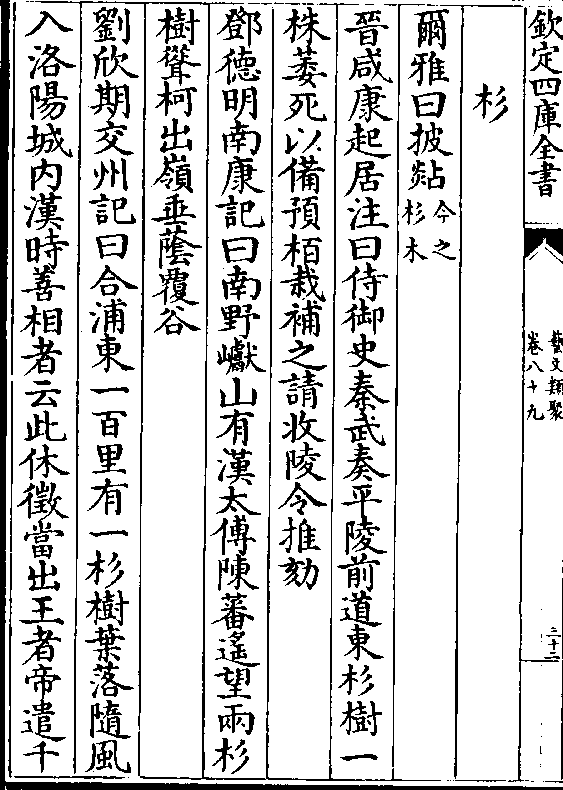 欽定四庫全書
藝文類聚
卷八十九
三十二
杉
爾雅曰披㸃今之杉木
晉咸康起居注曰侍御史秦武奏平陵前道東杉樹一
株萎死以備預栢栽補之請收陵令推劾
鄧德明南康記曰南野巘山有漢太傅陳蕃遙望兩杉
樹聳柯出嶺垂蔭覆谷
劉欣期交州記曰合浦東一百里有一杉樹葉落隨風
入洛陽城内漢時善相者云此休徵當出王者帝遣千